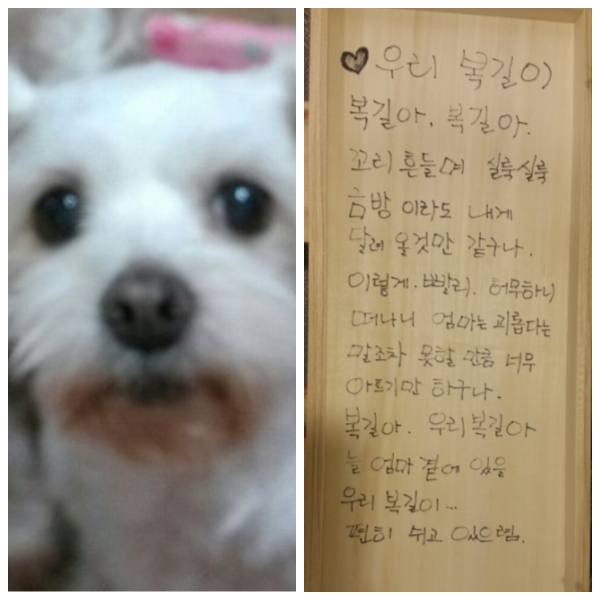 ♥우리 복길이
복길아. 복길아.
꼬리 흔들며 실룩실룩
금방 이라도 내게
달려 올것만 같구나.
이렇게. 빨리. 허무하니
떠나니 엄마는 괴롭다는
말조차 못할 만큼 너무
아프기만 하구나.
복길아. 우리복길아
늘 엄마 곁에 있을
우리 복길이...
편히 쉬고 있으렴.